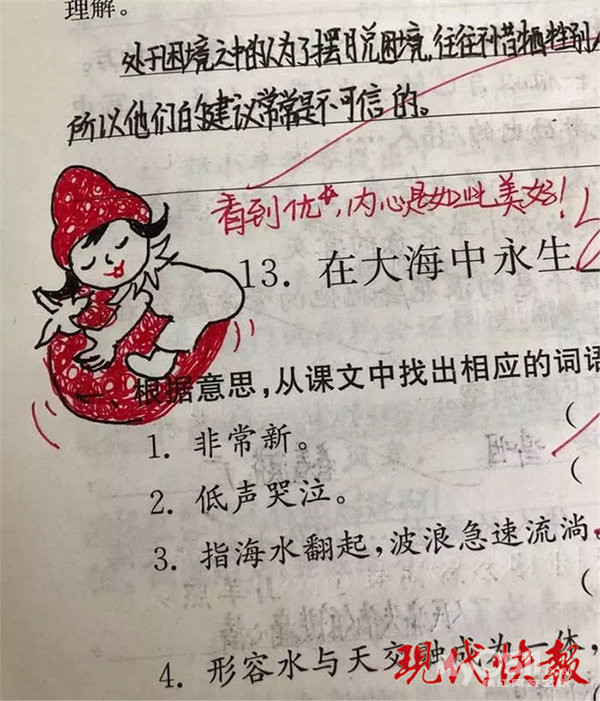 理解。
处于困境之中的人为了摆脱困境,往往不惜牺牲别人
所以他们的建议常常是不可信的。
看到优*,内心是如此美好!
13. 在大海中永生
根据意思,从课文中找出相应的词语
1. 非常新。 (
2. 低声哭泣。 (
3. 指海水翻起,波浪急速流淌。
(
4. 形容水与天交融成为一体,
现代快报